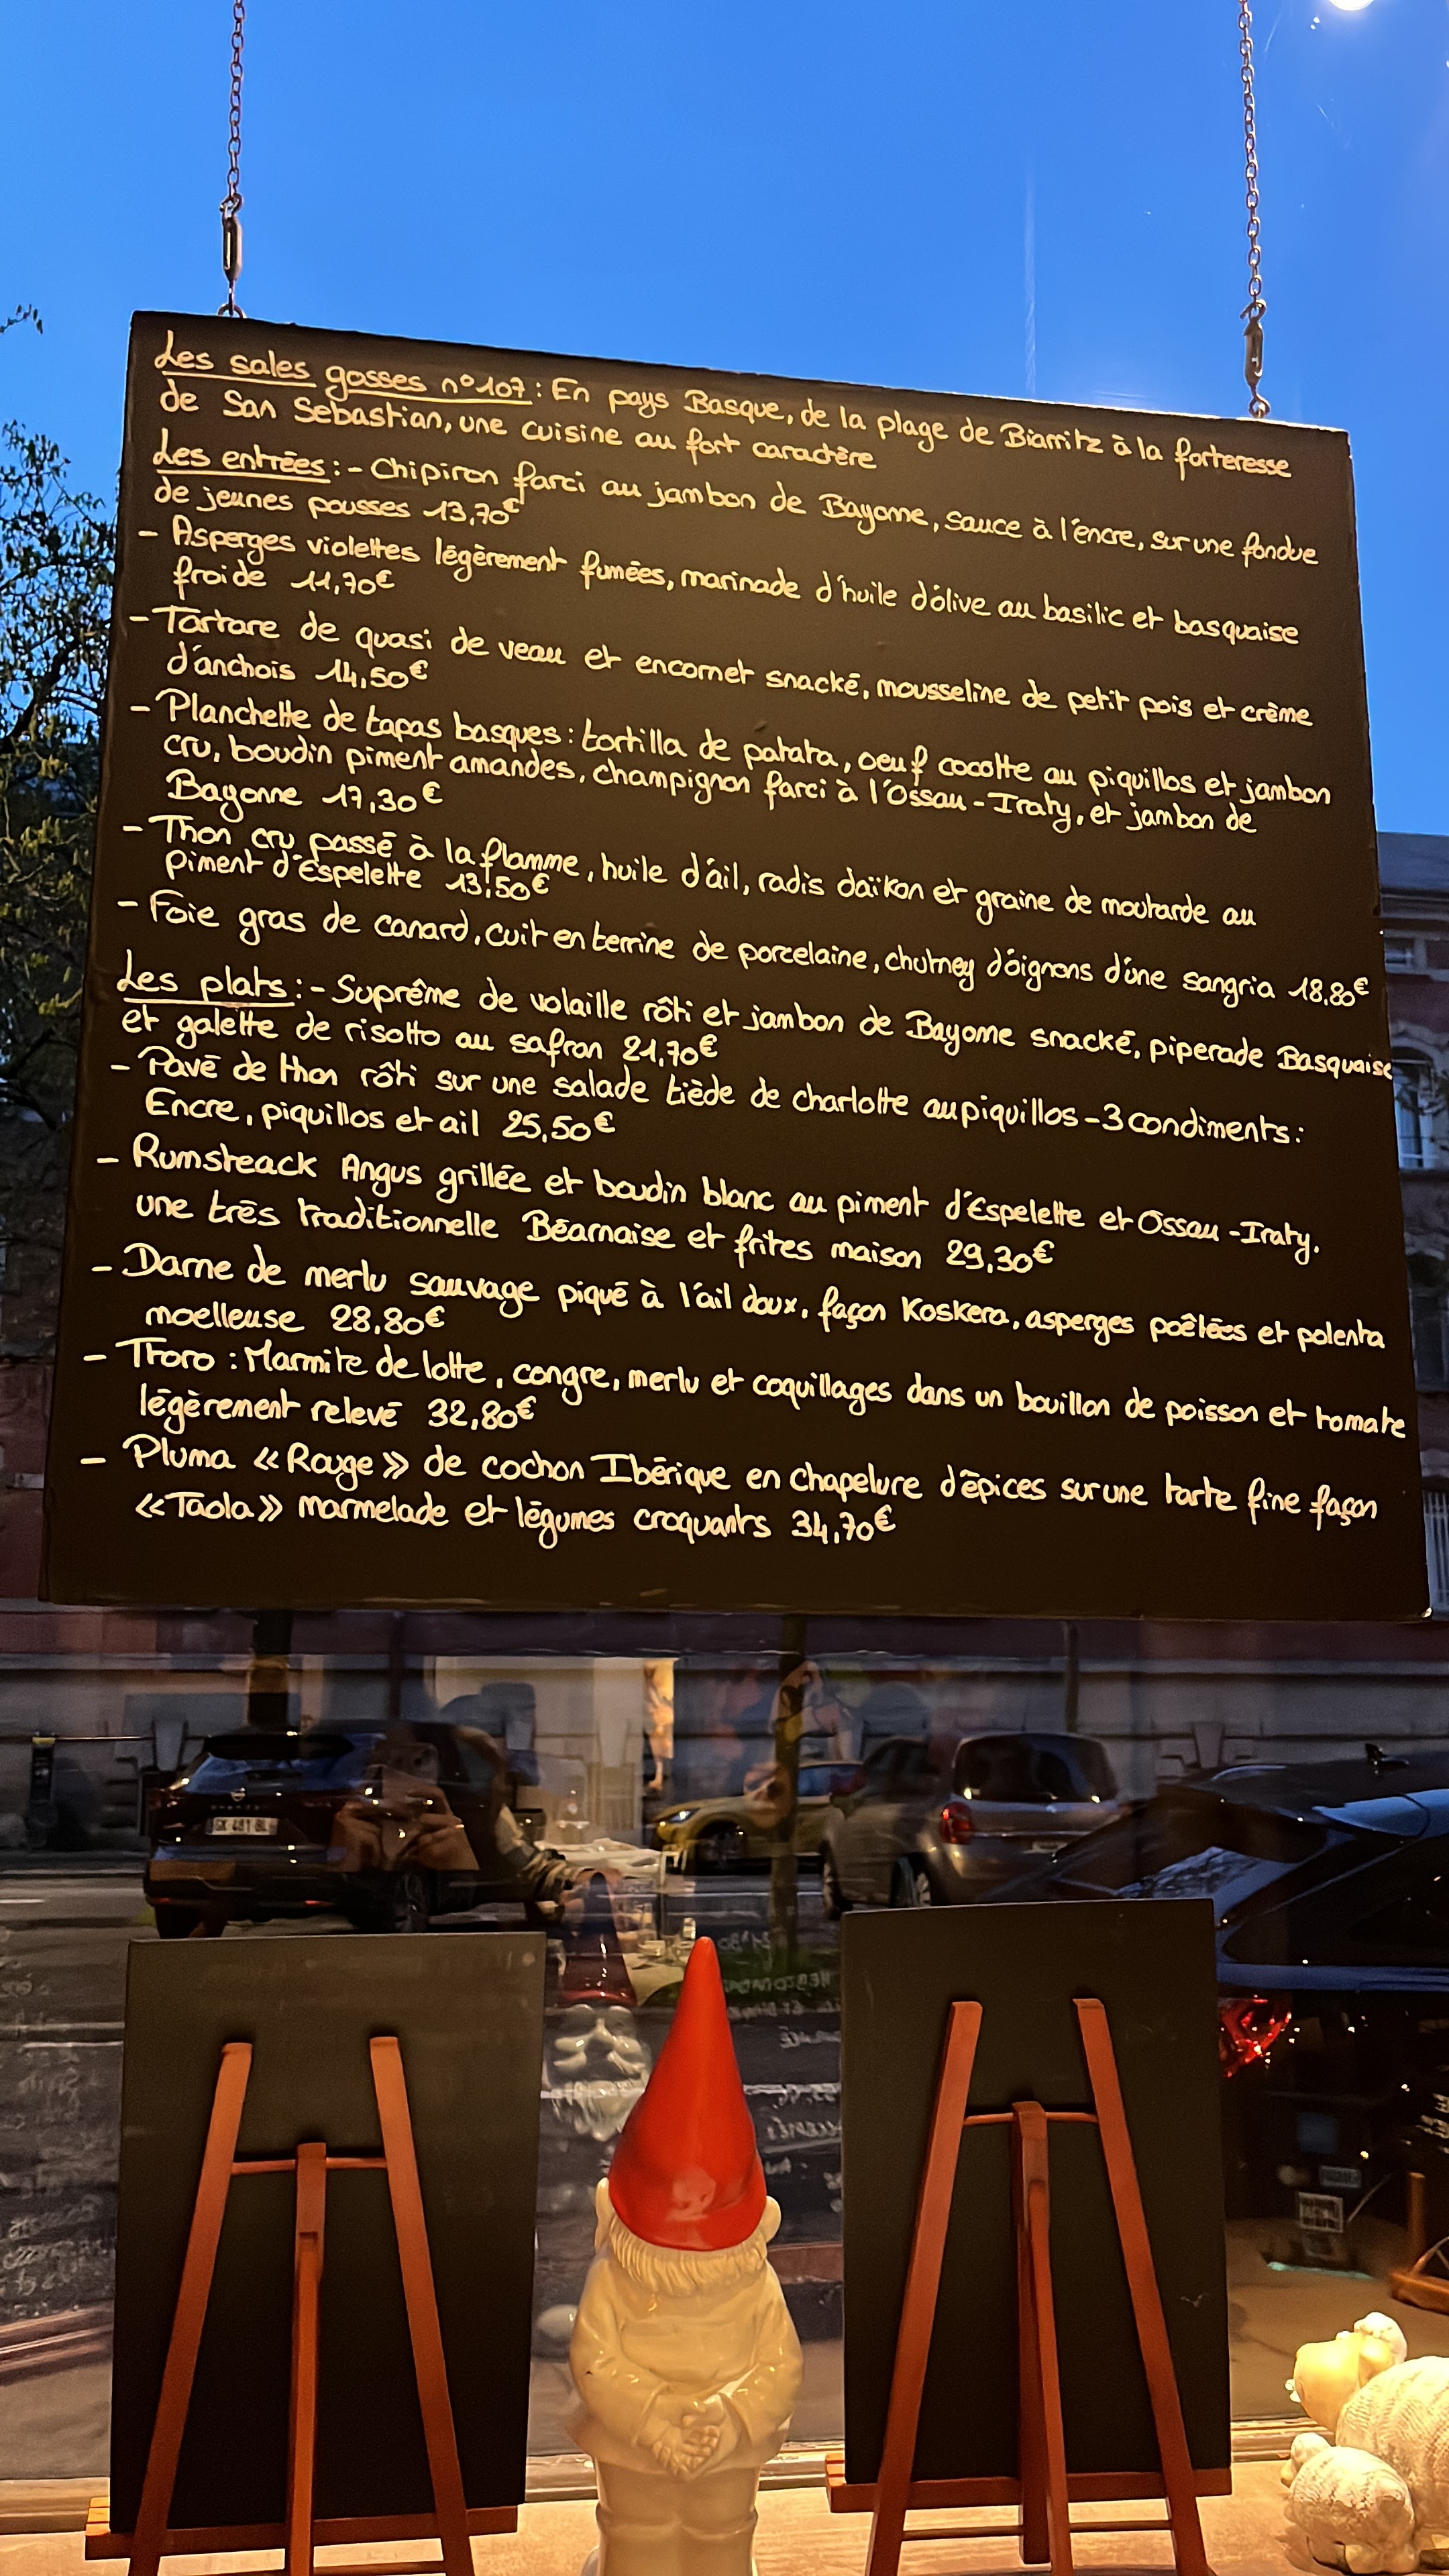 Les sales gosses n°107 : En pays Basque, de la plage de Biarritz à la forteresse
de San Sebastian, une cuisine au fort caractère
Les entrées : - Chipiron farci au jambon de Bayonne, sauce à l'encre, sur une fondue
de jeunes pousses 13,70€
- Asperges violettes légèrement fumées, marinade d'huile d'olive au basilic et basquaise
froide 11,70€
- Tartare de quasi de veau et encornet snacké, mousseline de petit pois et crème
d'anchois 14,50€
- Planchette de tapas basques : tortilla de patata, oeuf cocotte au piquillos et jambon
cru, boudin piment amandes, champignon farci à l'Ossau-Iraty, et jambon de
Bayonne 17,30€
- Thon cru passé à la flamme, huile d'ail, radis daïkon et graine de moutarde au
piment d'Espelette 13,50€
- Foie gras de canard, cuit en terrine de porcelaine, chutney d'oignons d'une sangria 18,80€
Les plats : - Suprême de volaille rôti et jambon de Bayonne snacké, piperade Basquaise
et galette de risotto au safran 21,70€
- Pavé de thon rôti sur une salade tiède de charlotte au piquillos - 3 condiments :
Encre, piquillos et ail 25,50€
- Rumsteack Angus grillée et boudin blanc au piment d'Espelette et Ossau-Iraty.
une très traditionnelle Béarnaise et frites maison 29,30€
- Darne de merlu sauvage piqué à l'ail doux, façon Koskera, asperges poêlées et polenta
moelleuse 28,80€
- Ttoro : Marmite de lotte, congre, merlu et coquillages dans un bouillon de poisson et tomate
légèrement relevé 32,80€
- Pluma « Rouge » de cochon Ibérique en chapelure d'épices sur une tarte fine façon
« Taola » marmelade et légumes croquants 34,70€